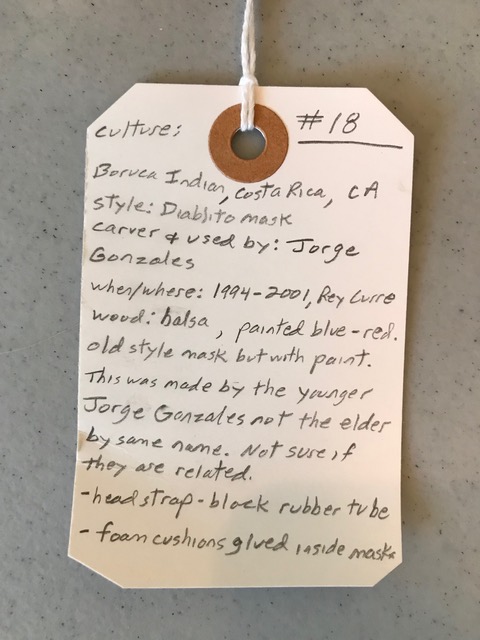 culture:
#18
Boruca Indian, Costa Rica, CA
style: Diablito mask
carver & used by: Jorge
Gonzales
when/where: 1994-2001, Rey Curre
wood: balsa, painted blue-red.
old style mask but with paint.
This was made by the younger
Jorge Gonzales not the elder
by same name. Not sure if
they are related.
-head strap-black rubber tube
- foam cushions glued inside mask